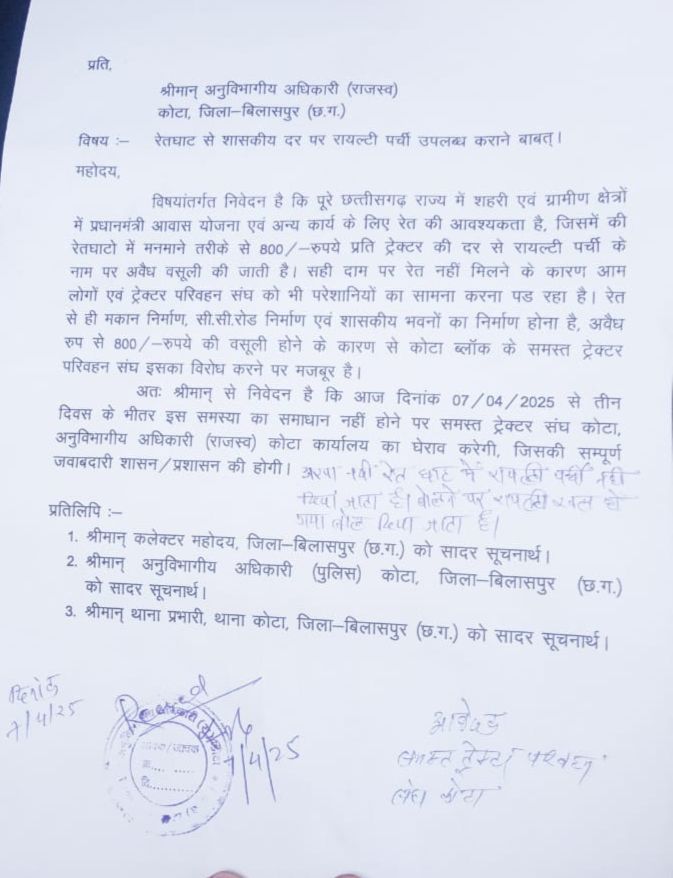 प्रति,
श्रीमान् अनुविभागीय अधिकारी (राजस्व)
कोटा, जिला–बिलासपुर (छ.ग.)
विषय :– रेतघाट से शासकीय दर पर रायल्टी पर्ची उपलब्ध कराने बाबत्।
महोदय,
विषयांतर्गत निवेदन है कि पूरे छत्तीसगढ़ राज्य में शहरी एवं ग्रामीण क्षेत्रों
में प्रधानमंत्री आवास योजना एवं अन्य कार्य के लिए रेत की आवश्यकता है, जिसमें की
रेतघाटो में मनमाने तरीके से 800/–रुपये प्रति ट्रेक्टर की दर से रायल्टी पर्ची के
नाम पर अवैध वसूली की जाती है। सही दाम पर रेत नहीं मिलने के कारण आम
लोगों एवं ट्रेक्टर परिवहन संघ को भी परेशानियों का सामना करना पड रहा है। रेत
से ही मकान निर्माण, सी.सी.रोड निर्माण एवं शासकीय भवनों का निर्माण होना है, अवैध
रुप से 800/–रुपये की वसूली होने के कारण से कोटा ब्लॉक के समस्त ट्रेक्टर
परिवहन संघ इसका विरोध करने पर मजबूर है।
अतः श्रीमान् से निवेदन है कि आज दिनांक 07/04/2025 से तीन
दिवस के भीतर इस समस्या का समाधान नहीं होने पर समस्त ट्रेक्टर संघ कोटा,
अनुविभागीय अधिकारी (राजस्व) कोटा कार्यालय का घेराव करेगी, जिसकी सम्पूर्ण
जवाबदारी शासन/प्रशासन की होगी। अरपा नदी रेत घाट में रायल्टी पर्ची नही
दिया जाता है। बोलने पर रायल्टी खत्म हो
गया बोल दिया जाता है।
प्रतिलिपि :–
1. श्रीमान् कलेक्टर महोदय, जिला–बिलासपुर (छ.ग.) को सादर सूचनार्थ।
2. श्रीमान् अनुविभागीय अधिकारी (पुलिस) कोटा, जिला–बिलासपुर (छ.ग.)
को सादर सूचनार्थ।
3. श्रीमान् थाना प्रभारी, थाना कोटा, जिला–बिलासपुर (छ.ग.) को सादर सूचनार्थ।
दिनांक
7/4/25
Received
7/4/25
आवेदक
समस्त ट्रेक्टर परिवहन
संघ कोटा